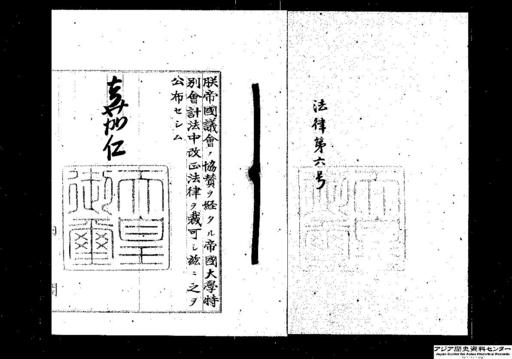 法律第六号
朕帝國議會ノ協賛ヲ経タル帝國大學特
別會計法中改正法律ヲ裁可シ茲ニ之ヲ
公布セシム
嘉仁
天皇
御璽
アジア歴史資料センター
Japan Center for Asian Historical Records